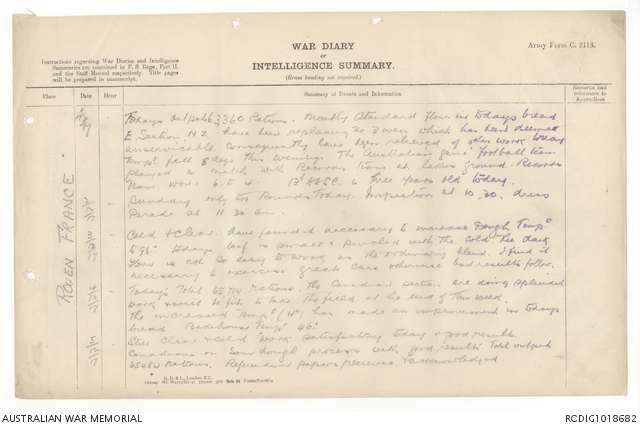 WAR DIARY
or
INTELLIGENCE SUMMARY.
(Erase heading not required.)
Army Form C. 2118.
Instructions regarding War Diaries and Intelligence
Summaries are contained in F. S. Regs., Part II.
and the Staff Manual respectively. Title pages
will be prepared in manuscript.
Place
Date
Hour
Summary of Events and Information
Remarks and
references to
Appendices
ROUEN FRANCE
Todays output 3360 Rations. Mostly Standard Flour in todays bread
E Section N.Z. have been replacing No 3 oven which has been deemed
unserviceable. Consequently have been relieved of other work today
fell 8 degs this evening. The Australian game football team
played a match with Records team at Lakin ground. Records
Team won
is three years old today.
Sunday only two Rounds Today. Inspection at 10.30. dress
Parade at 11.30 am.
Cold & clear. have found it necessary to increase Dough Temps
to 96° todays loaf is small & with the cold. The dark
flour is not so easy to work as the ordinary blend. I find it
necessary to exercise great care otherwise bad results follow.
Today's Total 65744 Rations. The Canadian section are doing splendid
work & will be fit to take the field at the end of this week.
The increased Temps (4°) has made an improvement in todays
bread Bakehouse Temps 46°
Still clear & cold work satisfactory today & good results
Canadians on Sour dough process with good results. Total output
65082 Rations. papers received & acknowledged
AUSTRALIAN WAR MEMORIAL
RCDIG1018682